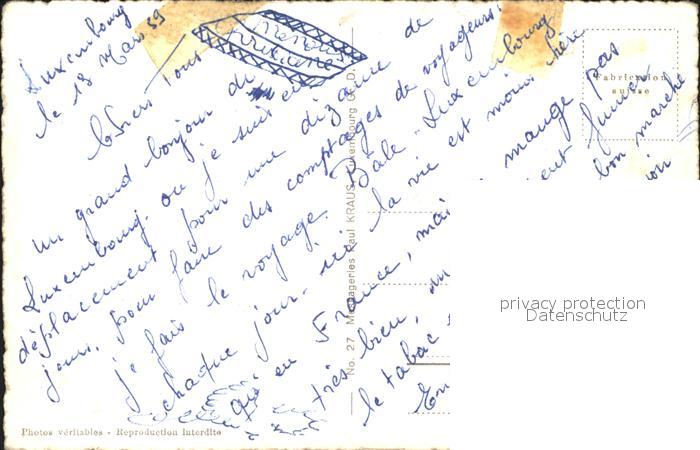 Luxembourg
le 18 Mars 59
Chers Tous
un grand bonjour de
Luxembourg. où je suis en
déplacement pour une dizaine de
jours, pour faire des comptages de voyageurs.
je fais le voyage Bale - Luxembourg
chaque jour. la vie est moins chère
qu'en France, mais mange pas
très bien, fumer
le tabac bon marché
Fabrication
suisse
No. 27 Messageries Paul KRAUS, Luxembourg
Photos véritables - Reproduction Interdite
privacy protection
Datenschutz